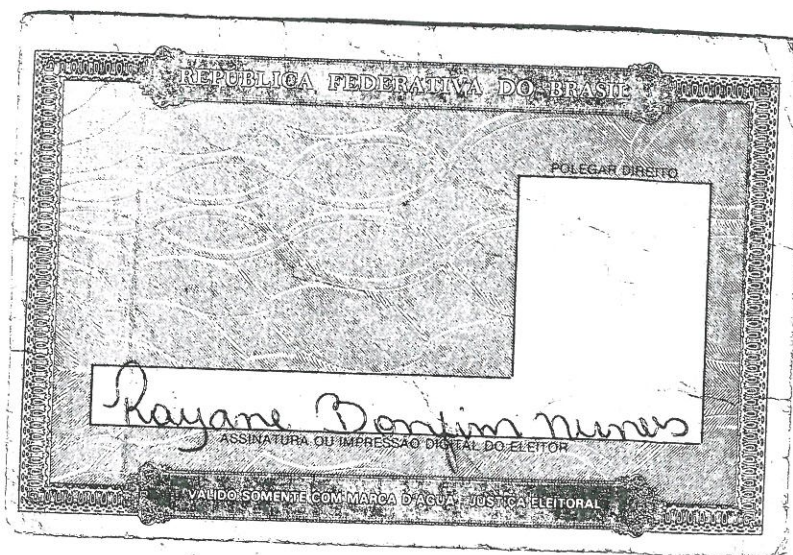 REPÚBLICA FEDERATIVA DO BRASIL
POLEGAR DIREITO
Rayane Bonfim Nunes
ASSINATURA OU IMPRESSÃO DIGITAL DO ELEITOR
VÁLIDO SOMENTE COM MARCA D'ÁGUA - JUSTIÇA ELEITORAL